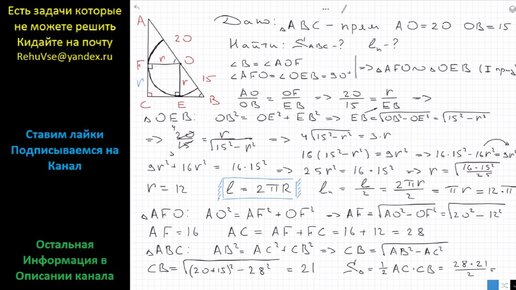 Есть задачи которые
не можете решить
Кидайте на почту
RehuVse@yandex.ru
Ставим лайки
Подписываемся на
Канал
Остальная
Информация в
Описании канала
A
20
F r O
r r 15
C E B
Дано: △ABC - прям AO=20 OB=15
Найти: S△ABC-? lп-?
∠B = ∠AOF
∠AFO = ∠OEB = 90° |⇒ △AFO ∼ △OEB (I приз)
AO/OB = OF/EB ⇒ 20/15 = r/EB ⇒
△OEB: OB² = OE² + EB² ⇒ EB = √(OB²-OE²) = √(15²-r²)
⇒ 20/15 = r/√(15²-r²) ⇒ 4√(15²-r²) = 3·r
4
3
16(15²-r²) = 9r² ⇒ 16·15²-16r² = 9r²
9r²+16r² = 16·15² ⇒ 25r² = 16·15² ⇒ r = √(16·15²/25)
r = 12 l = 2πR lп = l/2 = 2πr/2 = πr = 12·π
△AFO: AO² = AF² + OF² ⇒ AF = √(AO²-OF²) = √(20²-12²)
AF = 16 AC = AF + FC = 16 + 12 = 28
△ABC: AB² = AC² + CB² ⇒ CB = √(AB²-AC²)
CB = √((20+15)²-28²) = 21 S△ = 1/2 AC·CB = 28·21/2 =